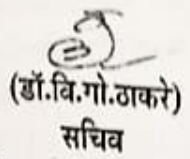 (डॉ.वि.गो.ठाकरे)
सचिव